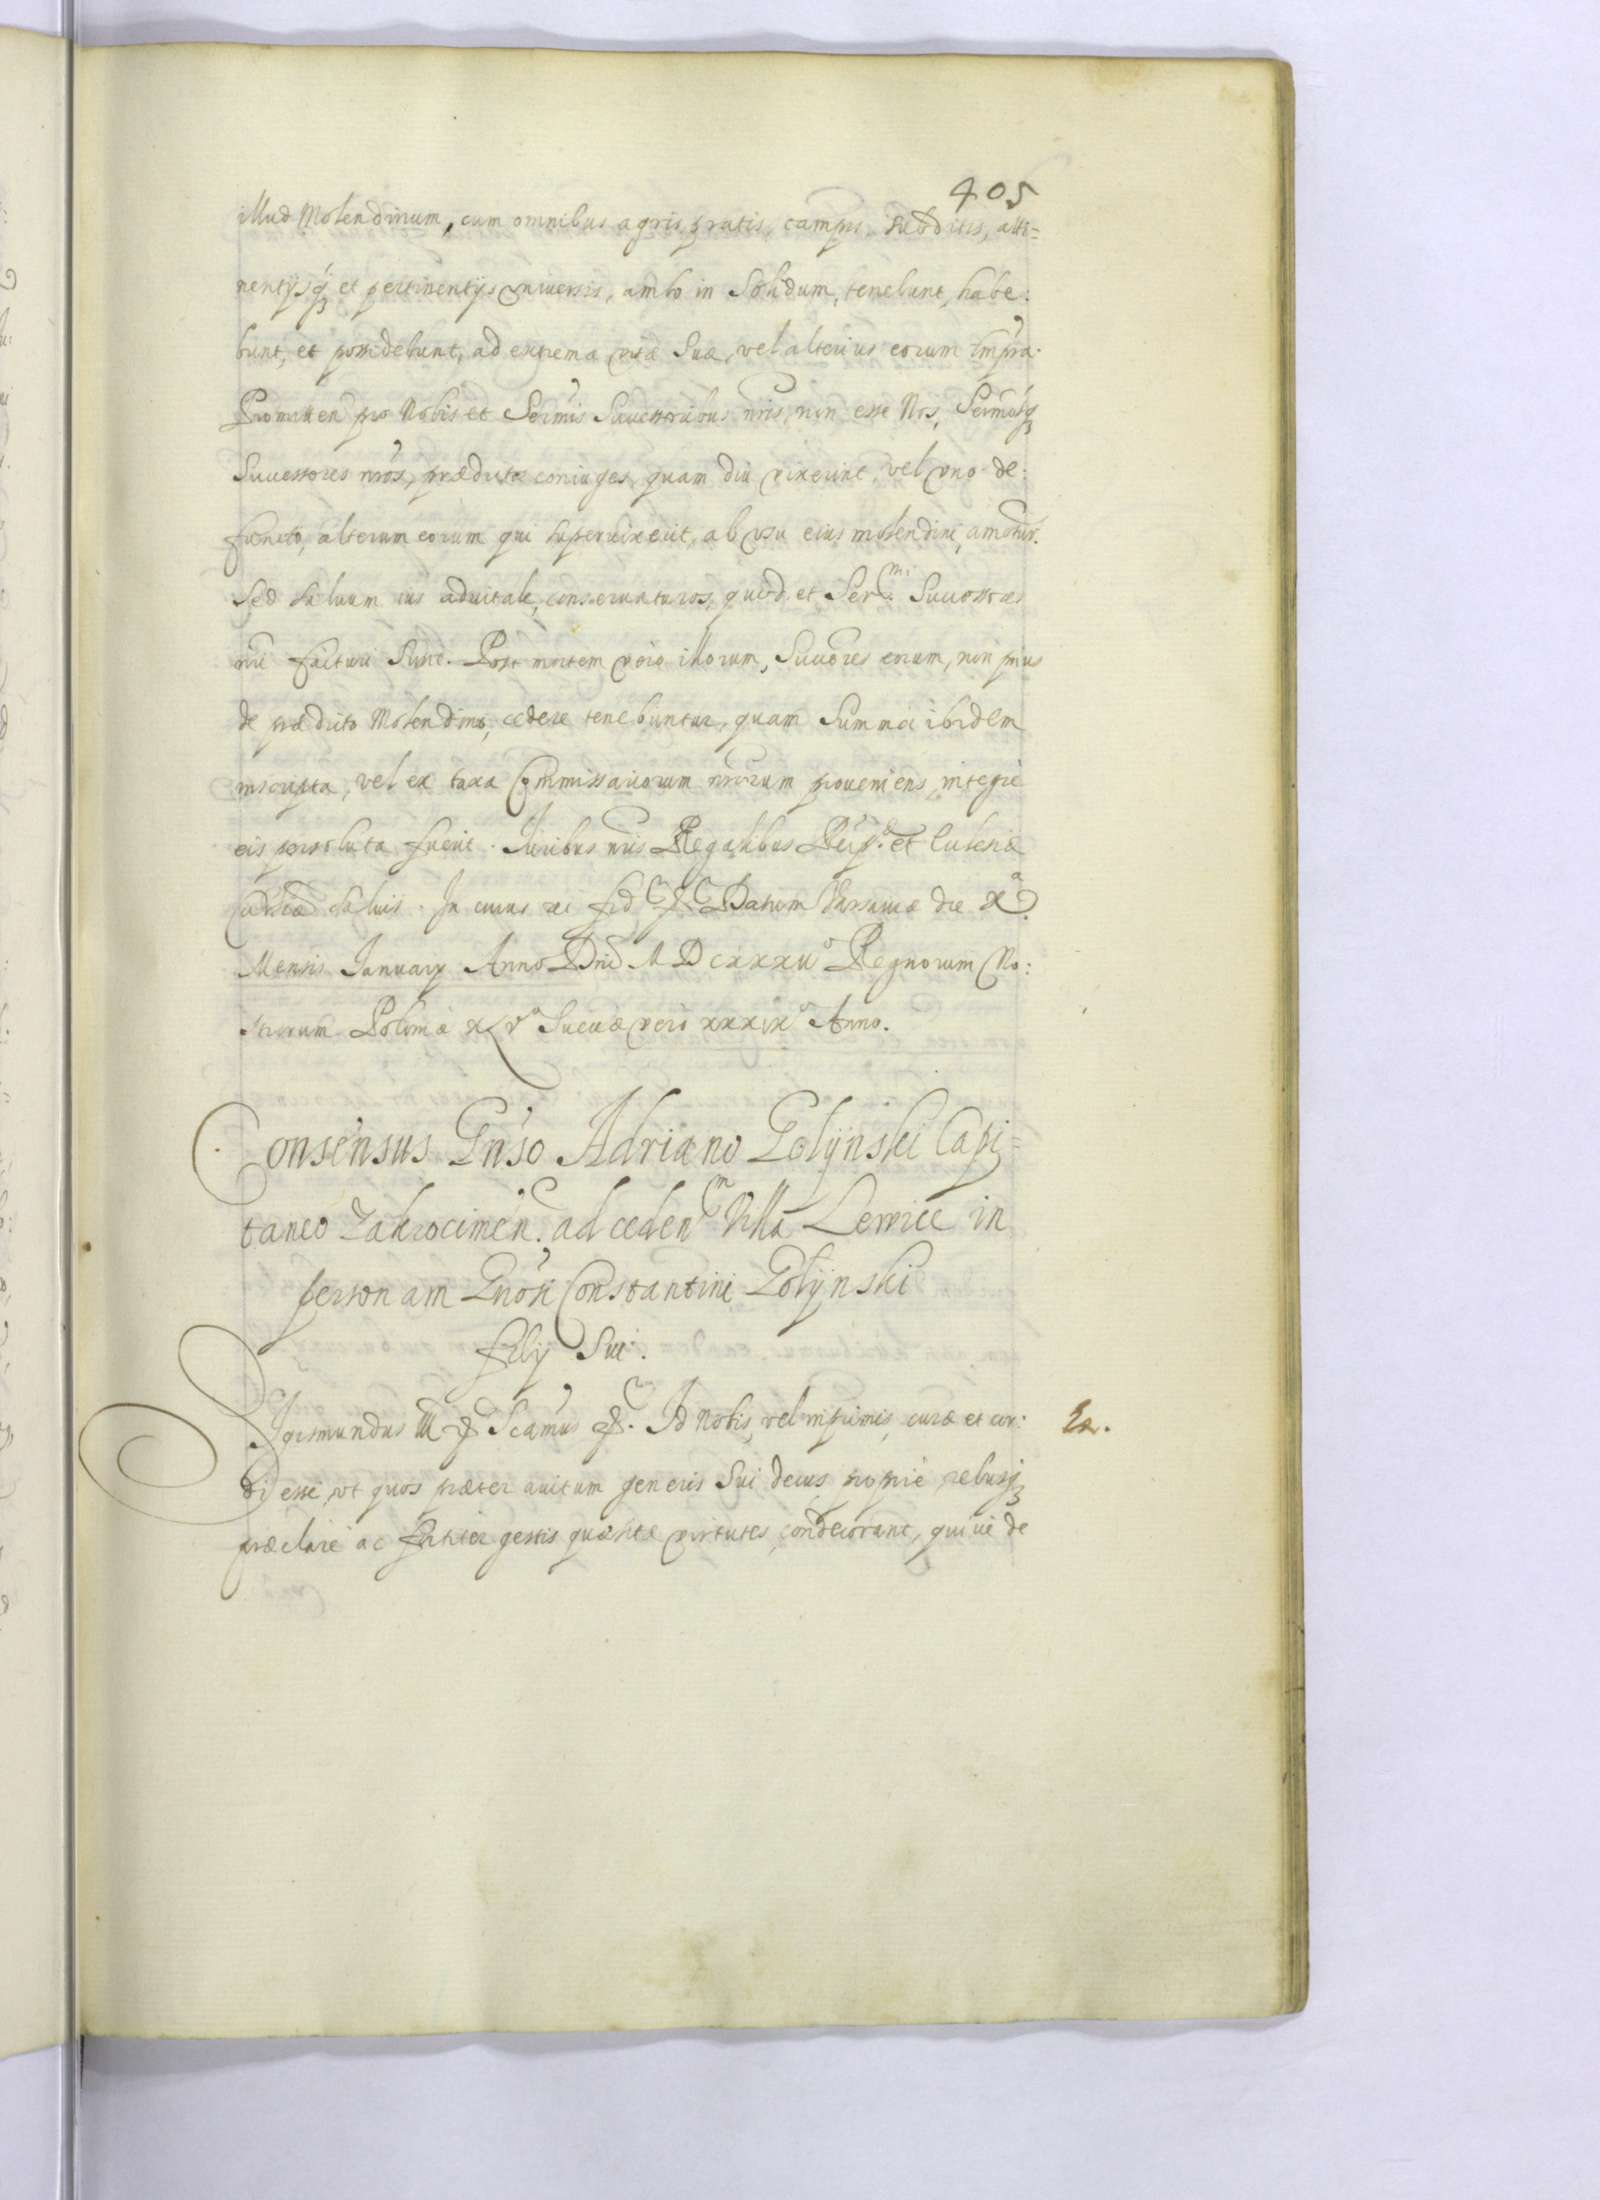 405
illud Molendinum, cum omnibus agris, pratis, campis, subditis, atti=
nentijsq; et pertinentijs vniuersis, ambo in Solidum, tenebunt, habe:
bunt, et possidebunt, ad extrema vitæ Suæ, vel alterius eorum tempora.
Promitten pro Nobis et Sermis Successoribus nris, non esse Nos, Sermosq;
Successores nros, prædictos coniuges, quam diu vixerint, vel vno de:
functo, alterum eorum qui superuixerit, ab vsu eius molendini, amotur.
Sed saluum ius aduitale, conseruaturos, quod et Ser.mi Successores
nri facturi sunt. Post mortem vero illorum, Succores eorum, non prius
de prædicto Molendino, cedere tenebuntur, quam Summa ibidem
inscripta, vel ex taxa Commissariorum nrorum proueniens, integre
eis persoluta fuerit. Juribus nris Regalibus Reip. et Ecclesiæ
salvis. In cuius rei fid Datum Varsauiæ die X.a
Mensis January Anno Dni M D Cxxxii.o Regnorum No:
strorum Poloniæ XLV.o Sueciæ vero xxxix.o Anno.
Consensus Gnso Adriano Golijnski Capi=
taneo Zakrocimen. ad ceden villa Lewice in
personam Gnosi Constantini Golijnski
filij Sui.
Sigismundus III Scamus Id Nobis, vel inprimis, curæ et cor:
di esse, vt quos præter auitum generis Sui decus, proprie, rebusq;
præclare ac fortiter gestis quæsitæ virtutes, condecorant, quiue de